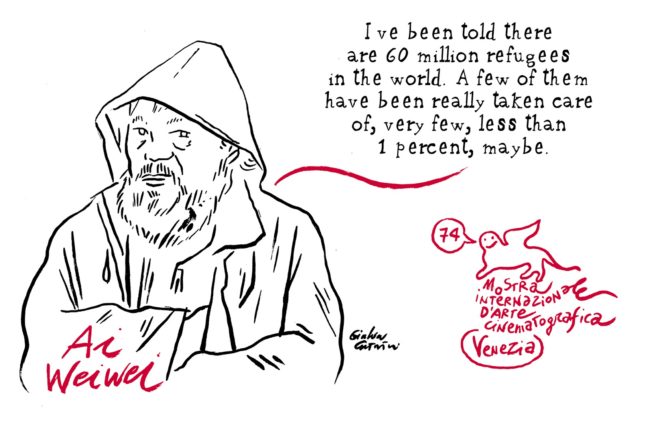 I've been told there
are 60 million refugees
in the world. A few of them
have been really taken care
of, very few, less than
1 percent, maybe.
74
Mostra
internazionale
d'arte
cinematografica
Venezia
Ai
Weiwei